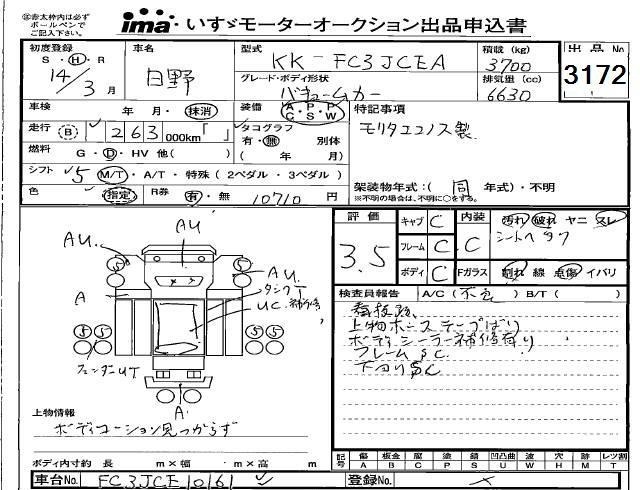 ㊟赤太枠内は必ず
ボールペンで
ご記入下さい。
ima いすゞモーターオークション出品申込書
初度登録 S・H・R 14/3月
車名 日野
型式 KK-FC3JCEA
積載 (kg) 3700
出品No 3172
グレード・ボディ形状 バキュームカー
排気量 (cc) 6630
車検 年 月・抹消
装備 A・P・P C・S・W
特記事項
モリタエコノス製
走行 B 263 000km「 」
タコグラフ 有・無 別体 ( 年 月)
燃料 G・D・HV 他( )
シフト 5 M/T・A/T・特殊 (2ペダル・3ペダル)
架装物年式:( 同 年式)・不明
※不明の場合は、不明に○をする。
色 指定 R券 有・無 10710円
評価 3.5
キャブ C
フレーム C
ボディ C
内装 C
Fガラス
汚れ 破れ ヤニ スレ
割れ 線 点傷 イバリ
検査員報告 A/C( ) B/T( )
上物ホーステープばり
ボディシーラー補修有り
フレームSC
下回りSC
AU
AU.
AU
A
UC
5 5
5 5 5 5
フェンダーUT
A
上物情報
ボディコーション見つからず
ボディ内寸約 長 m×幅 m×高 m
記号 傷A 板金B 腐C 塗P 錆S 凹凸曲U 波W 穴H 跡M レツ割T
車台No FC3JCE10161
登録No